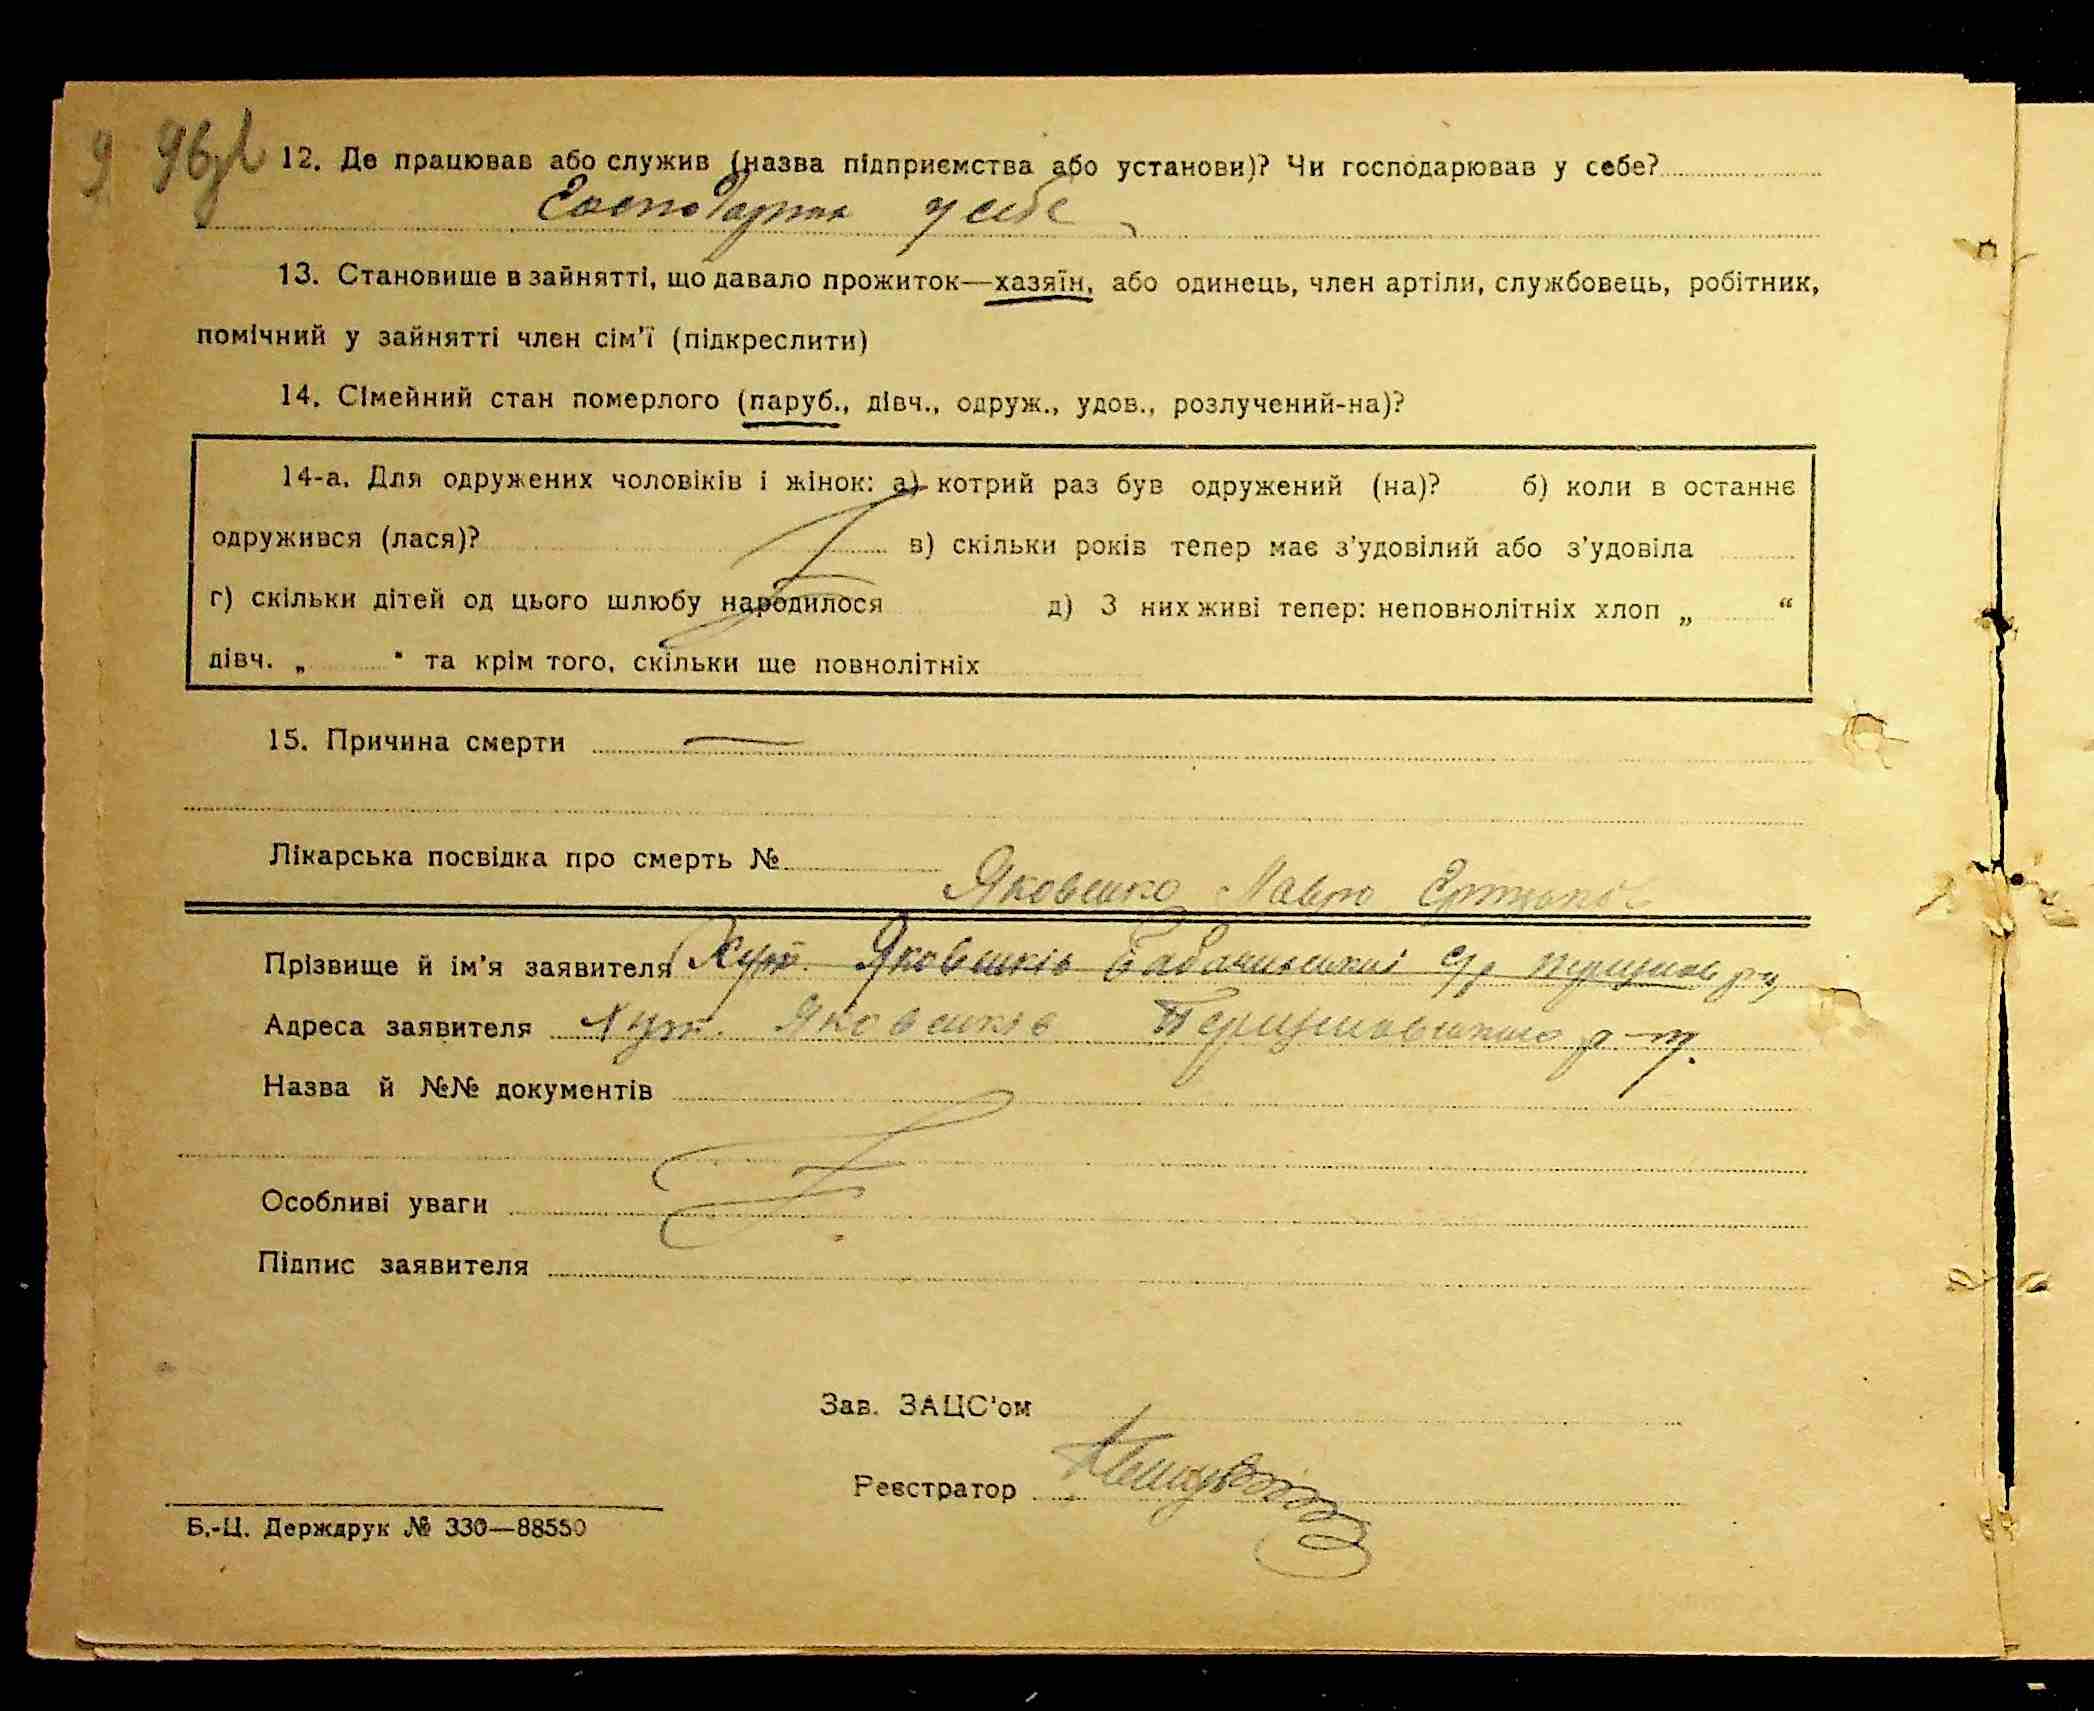 9 96
12. Де працював або служив (назва підприємства або установи)? Чи господарював у себе?
Господарив у себе
13. Становище в зайнятті, що давало прожиток—хазяїн, або одинець, член артіли, службовець, робітник,
помічний у зайнятті член сім’ї (підкреслити)
14. Сімейний стан померлого (паруб., дівч., одруж., удов., розлучений-на)?
14-а. Для одружених чоловіків і жінок: а) котрий раз був одружений (на)? б) коли в останнє
одружився (лася)? в) скільки років тепер має з’удовілий або з’удовіла
г) скільки дітей од цього шлюбу народилося д) З них живі тепер: неповнолітніх хлоп „ “
дівч. „ “ та крім того, скільки ще повнолітніх
15. Причина смерти —
Лікарська посвідка про смерть №
Яковенко Павло
Прізвище й ім’я заявителя Хут. Яковенків с/р
Адреса заявителя Хут. Яковенків
Назва й №№ документів
Особливі уваги
Підпис заявителя
Зав. ЗАЦС’ом
Реєстратор
Б.-Ц. Держдрук № 330—88550